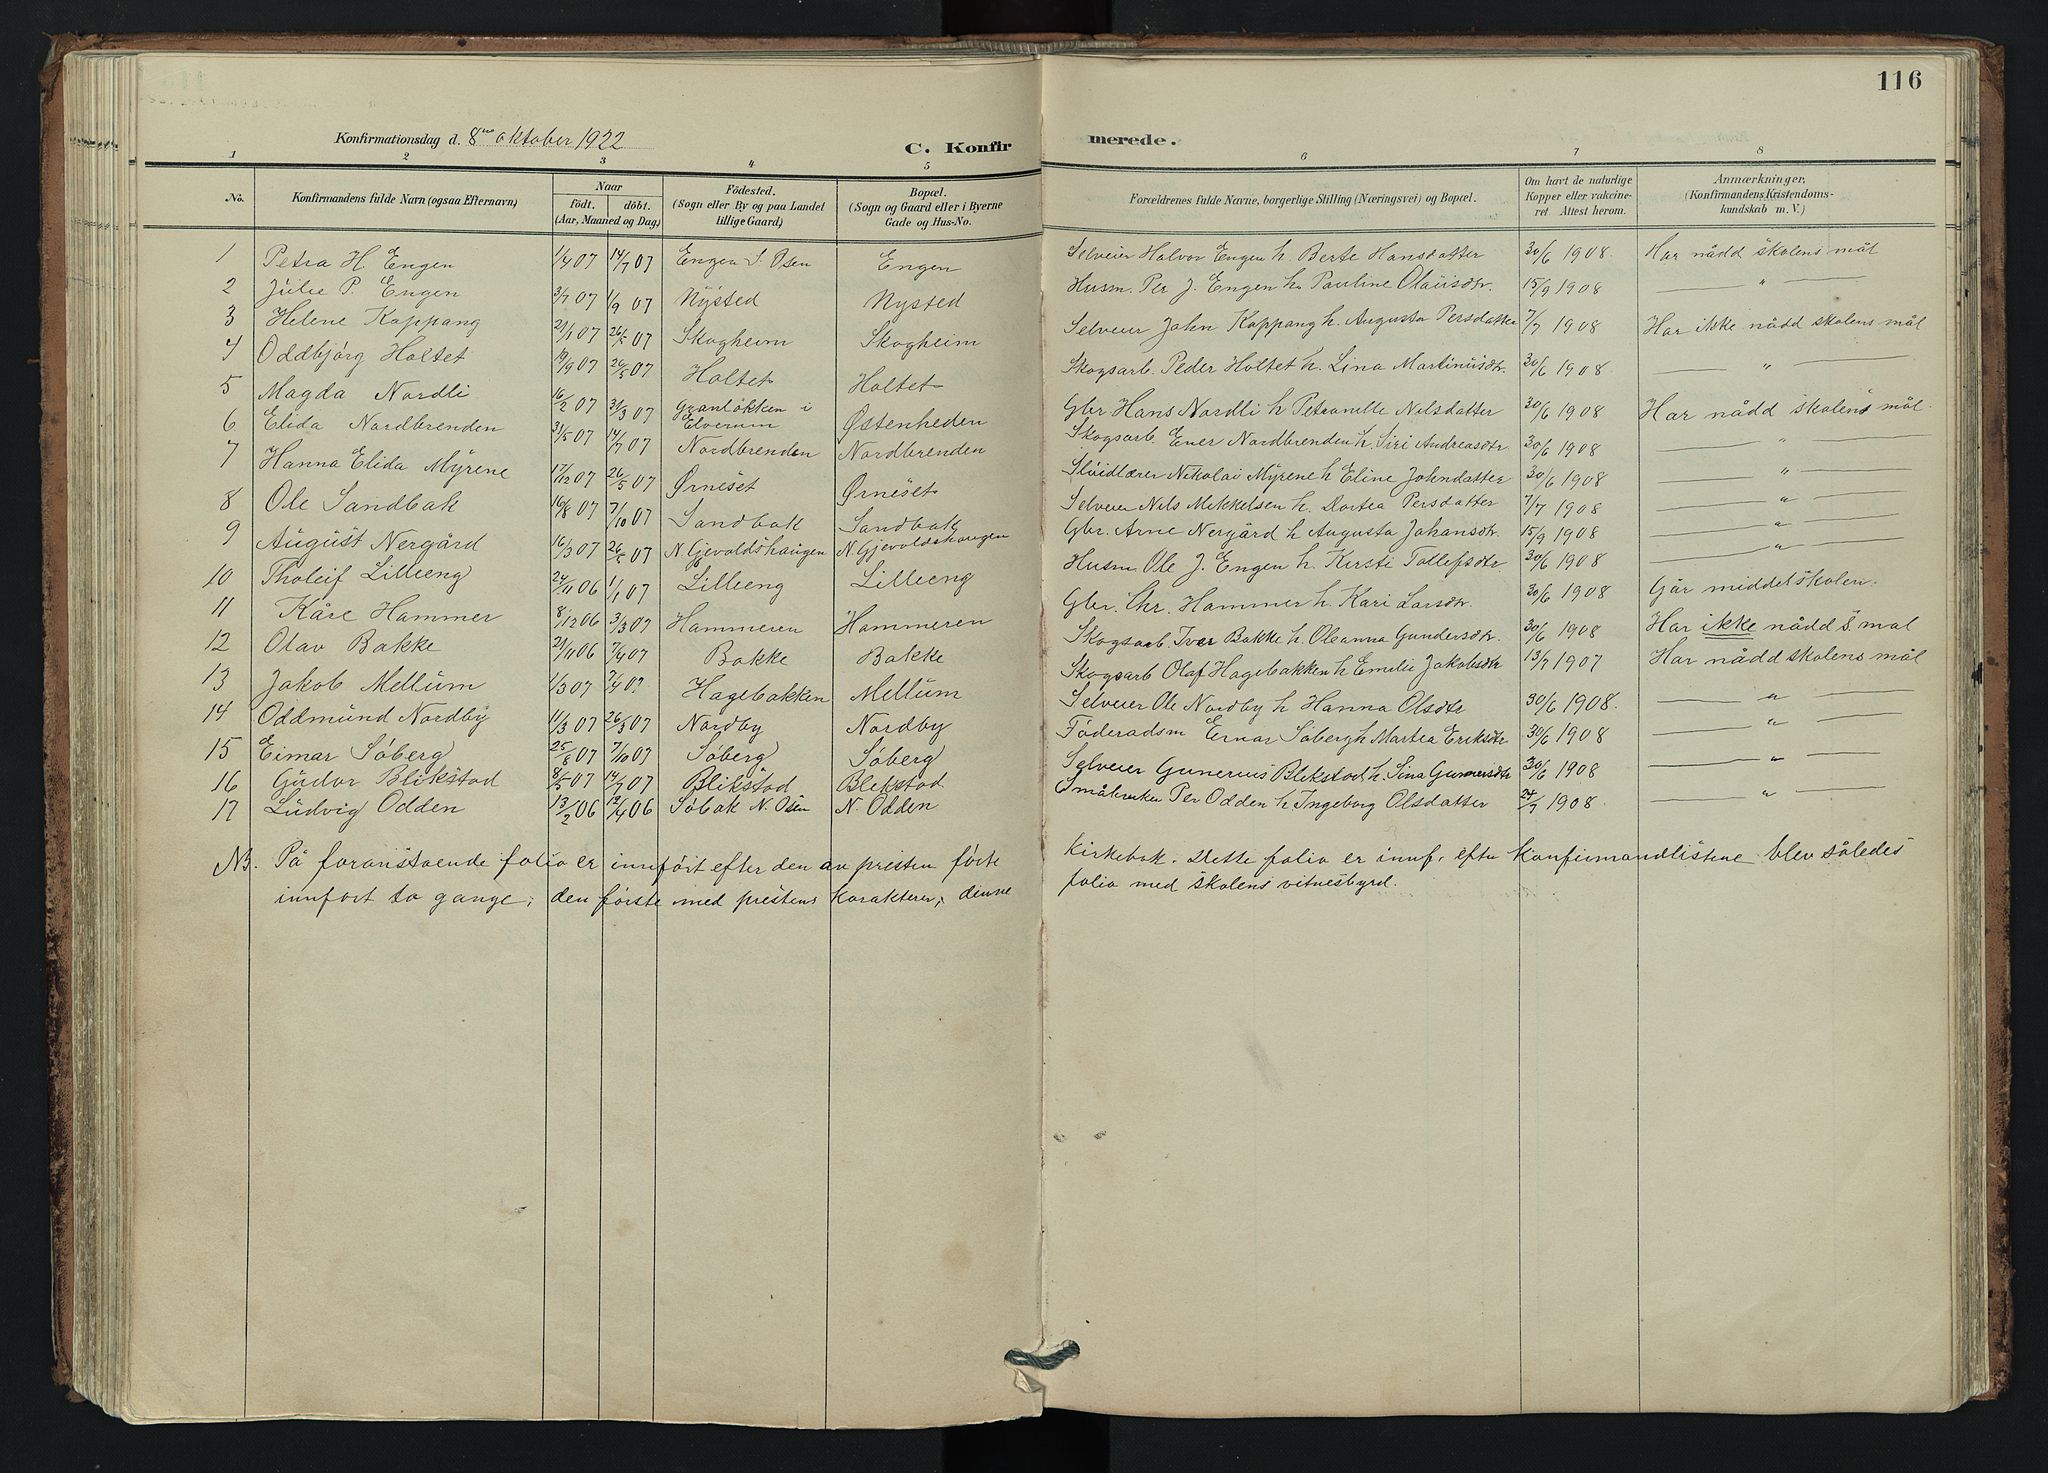 116
Konfirmationsdag d. 8de oktober 1922
C. Konfirmerede.
1 2 3 4 5 6 7 8
No. Konfirmandens fulde Navn (ogsaa Efternavn) Naar födt. döbt. (Aar, Maaned og Dag) Födested. (Sogn eller By og paa Landet tillige Gaard) Bopæl. (Sogn og Gaard eller i Byerne Gade og Hus-No. Forældrenes fulde Navne, borgerlige Stilling (Næringsvei) og Bopæl. Om havt de naturlige Kopper eller vakcineret Attest herom. Anmærkninger, (Konfirmandens Kristendomskundskab m. V.)
1 Petra H. Engen 1/4 07 14/7 07 Engen S. Osen Engen Selveier Halvor Engen h. Berte Hansdatter 30/6 1908. Har nådd skolens mål
2 Julie P. Engen 3/7 07 1/9 07 Nysted Nysted Husm. Per J. Engen h. Pauline Olausdtr. 15/9 1908 — " —
3 Helene Kappang 21/1 07 26/5 07 Skogheim Skogheim Selveier John Kappang h. Augusta Persdatter 7/7 1908 Har ikke nådd skolens mål
4 Oddbjörg Holtet 19/9 07 26/5 07 Holtet Holtet Skogsarb. Peder Holtet h. Lina Martinusdtr. 30/6 1908. — " —
5 Magda Nordli 16/2 07 31/3 07 Granløkken i Elverum Østenheden Gbr Hans Nordli h Petronelle Nilsdatter 30/6 1908 Har nådd skolens mål.
6 Elida Nordbrenden 31/5 07 14/7 07 Nordbrenden Nordbrenden Skogsarb. Ener Nordbrenden h. Siri Andreasdtr. 30/6 1908 — " —
7 Hanna Elida Myrene 17/12 07 26/5 07 Ørneset Ørneset Sløidlærer Nikolai Myrene h Eline Johndatter 30/6 1908 — " —
8 Ole Sandbak 16/8 07 7/10 07 Sandbak Sandbak Selveier Nils Mikkelsen h. Dortea Persdatter 7/7 1908 — " —
9 August Nergård 16/3 07 26/5 07 N. Gjevoldshaugen N. Gjevoldshaugen Gbr. Arne Nergård h Augusta Johansdtr. 15/9 1908 — " —
10 Tholeif Lilleeng 24/11 06 1/1 07 Lilleeng Lilleeng Husm Ole J. Engen h. Kirsti Tollefsdtr 30/6 1908 — " —
11 Kåre Hammer 8/12 06 3/3 07 Hammeren Hammeren Gbr. Chr. Hammer h. Kari Larsdtr. 30/6 1908 Går middelskolen.
12 Olav Bakke 21/11 06 7/4 07 Bakke Bakke Skogsarb Iver Bakke h. Oleanna Gundersdtr. 30/6 1908 Har ikke nådd s. mål
13 Jakob Mellum 1/3 07 7/4 07 Hagebakken Mellum Skogsarb Olaf Hagebakken h Emilie Jakobsdtr 13/7 1907 Har nådd skolens mål
14 Oddmund Nordby 11/3 07 26/3 07 Nordby Nordby Selveier Ole Nordby h Hanna Olsdtr 30/6 1908. — " —
15 Eimar Søberg 25/8 07 7/10 07 Søberg Søberg Føderadsm Ernar Søberg h Martea Eriksdtr 30/6 1908 — " —
16 Gudor Blikstad 8/5 07 14/7 07 Blikstad Blekstad Selveier Gunerius Blekstad h. Sina Gunnersdtr 30/6 1908 — " —
17 Ludvig Odden 13/2 06 12/4 06 Søbak N. Osen N. Odden Småbruker Per Odden h Ingeborg Olsdatter 24/7 1908. — " —
NB. På foranstående folio er innført efter den av presten førte kirkebok. Dette folio er innf. efter konfirmandlistene blev således
innført to gange; den første med prestens karakterer, denne folio med skolens vitnesbyrd.